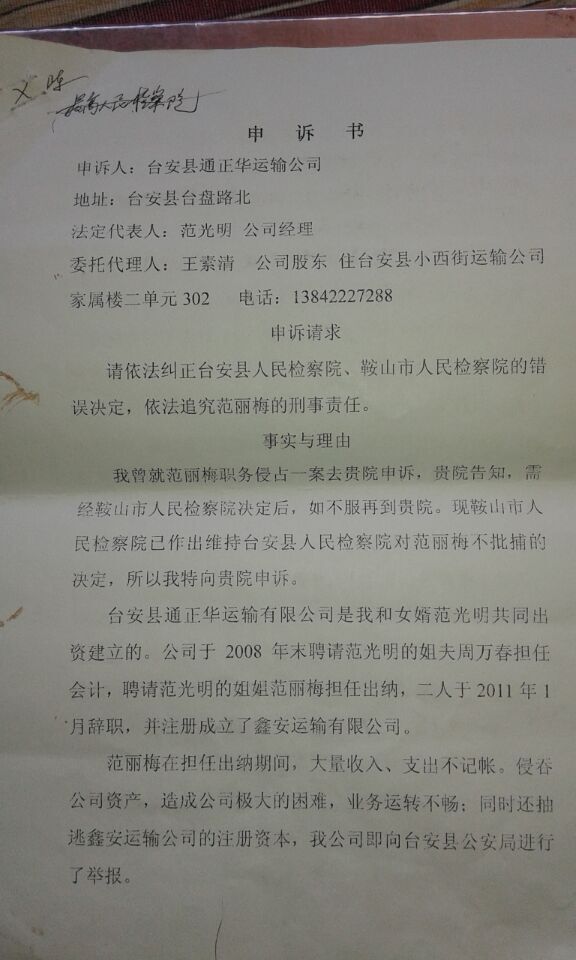 最高人民检察院
申 诉 书
申诉人：台安县通正华运输公司
地址：台安县台盘路北
法定代表人：范光明 公司经理
委托代理人：王素清 公司股东 住台安县小西街运输公司
家属楼二单元 302 电话：13842227288
申诉请求
请依法纠正台安县人民检察院、鞍山市人民检察院的错
误决定，依法追究范丽梅的刑事责任。
事实与理由
我曾就范丽梅职务侵占一案去贵院申诉，贵院告知，需
经鞍山市人民检察院决定后，如不服再到贵院。现鞍山市人
民检察院已作出维持台安县人民检察院对范丽梅不批捕的
决定，所以我特向贵院申诉。
台安县通正华运输有限公司是我和女婿范光明共同出
资建立的。公司于 2008 年末聘请范光明的姐夫周万春担任
会计，聘请范光明的姐姐范丽梅担任出纳，二人于 2011 年 1
月辞职，并注册成立了鑫安运输有限公司。
范丽梅在担任出纳期间，大量收入、支出不记帐。侵吞
公司资产，造成公司极大的困难，业务运转不畅；同时还抽
逃鑫安运输公司的注册资本，我公司即向台安县公安局进行
了举报。